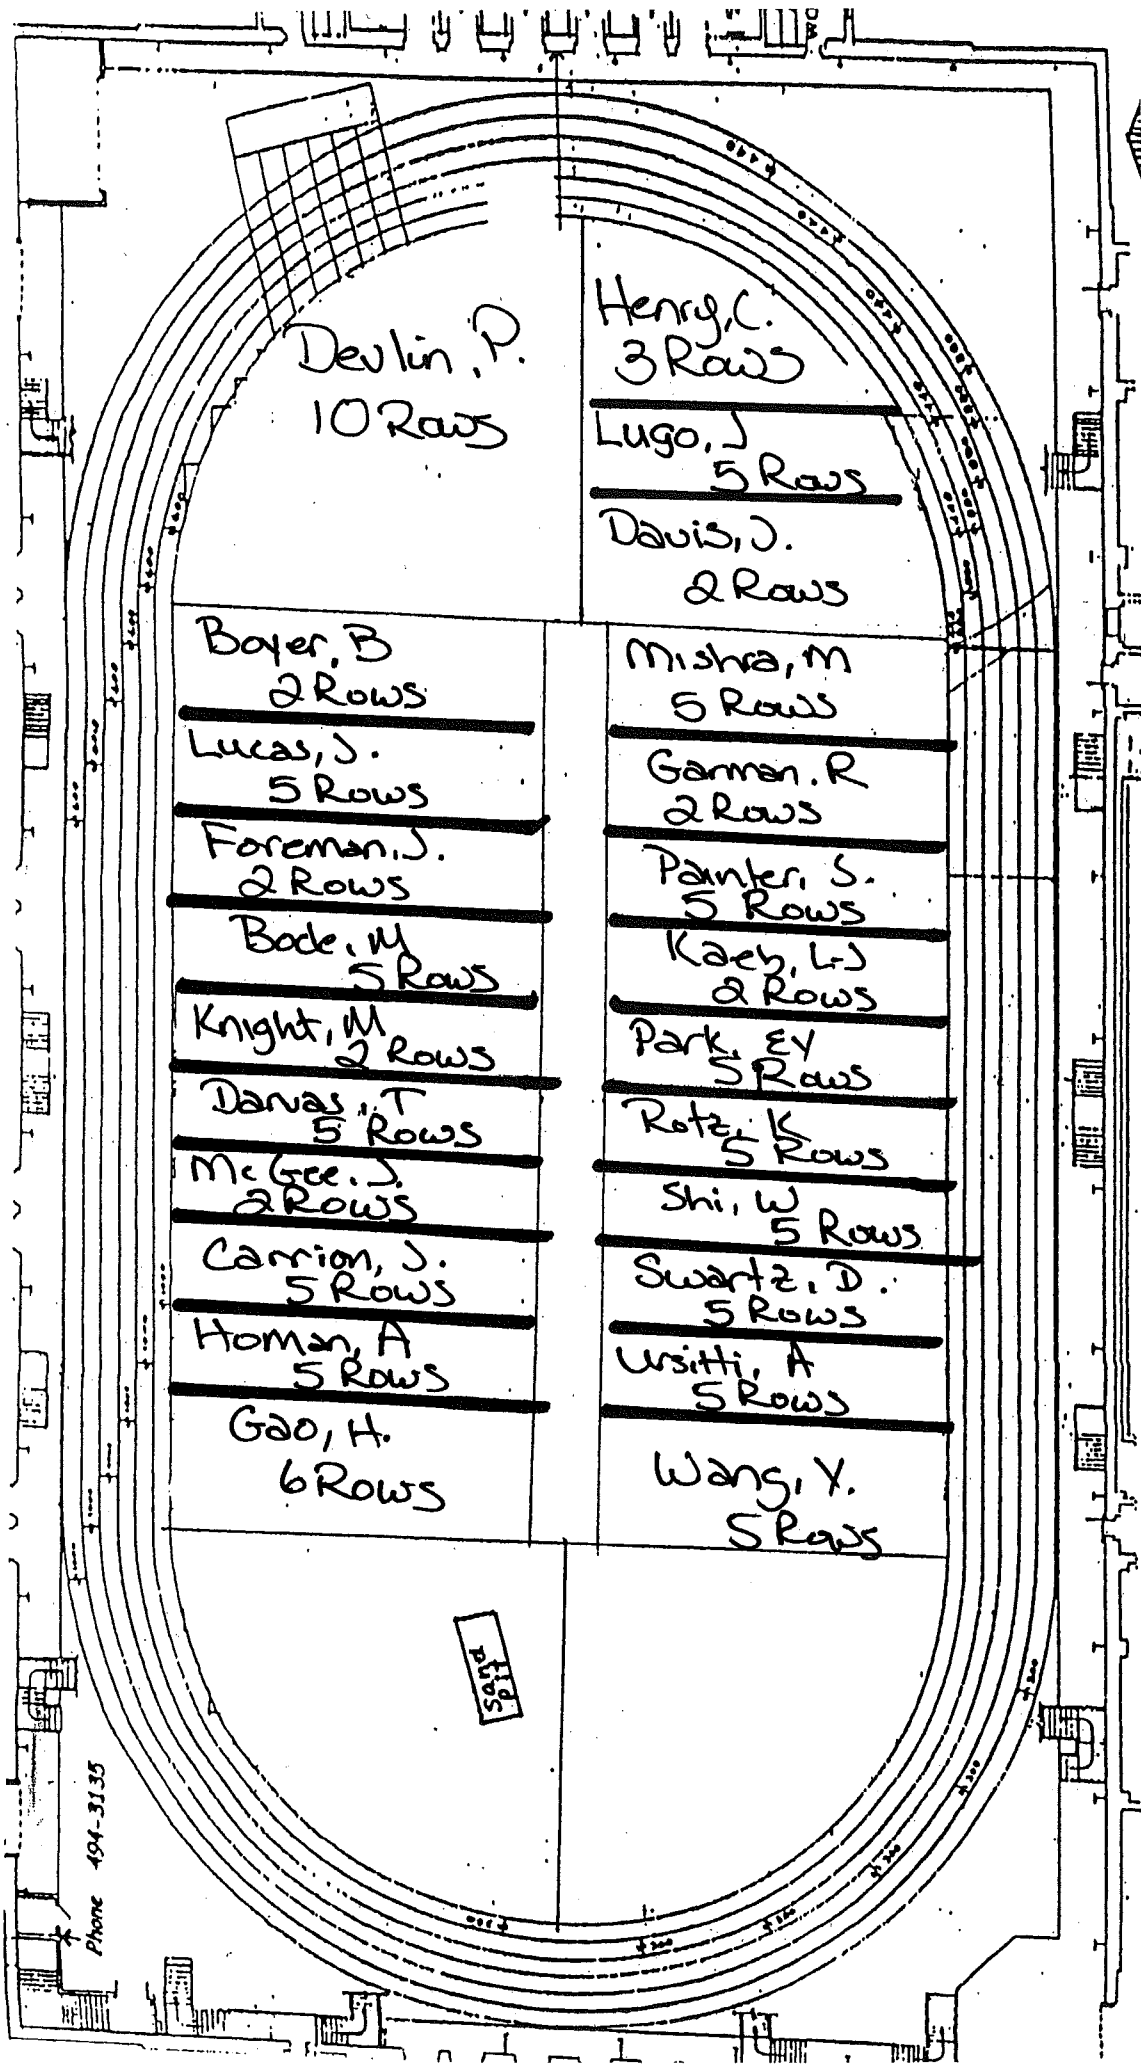 Devlin, P.
10 Rows
Henry, C.
3 Rows
Lugo, J
5 Rows
Davis, J.
2 Rows
Boyer, B
2 Rows
Lucas, J.
5 Rows
Foreman, J.
2 Rows
Bode, M
5 Rows
Knight, M
2 Rows
Darvas, T
5 Rows
McGee, J.
2 Rows
Carrion, J.
5 Rows
Homan, A
5 Rows
Gao, H.
6 Rows
Mishra, M
5 Rows
Garman, R
2 Rows
Painter, S.
5 Rows
Kaeb, L-J
2 Rows
Park, EY
5 Rows
Rotz, K
5 Rows
Shi, W
5 Rows
Swartz, D.
5 Rows
Ursitti, A
5 Rows
Wang, Y.
5 Rows
Sand
pit
Phone 494-3135